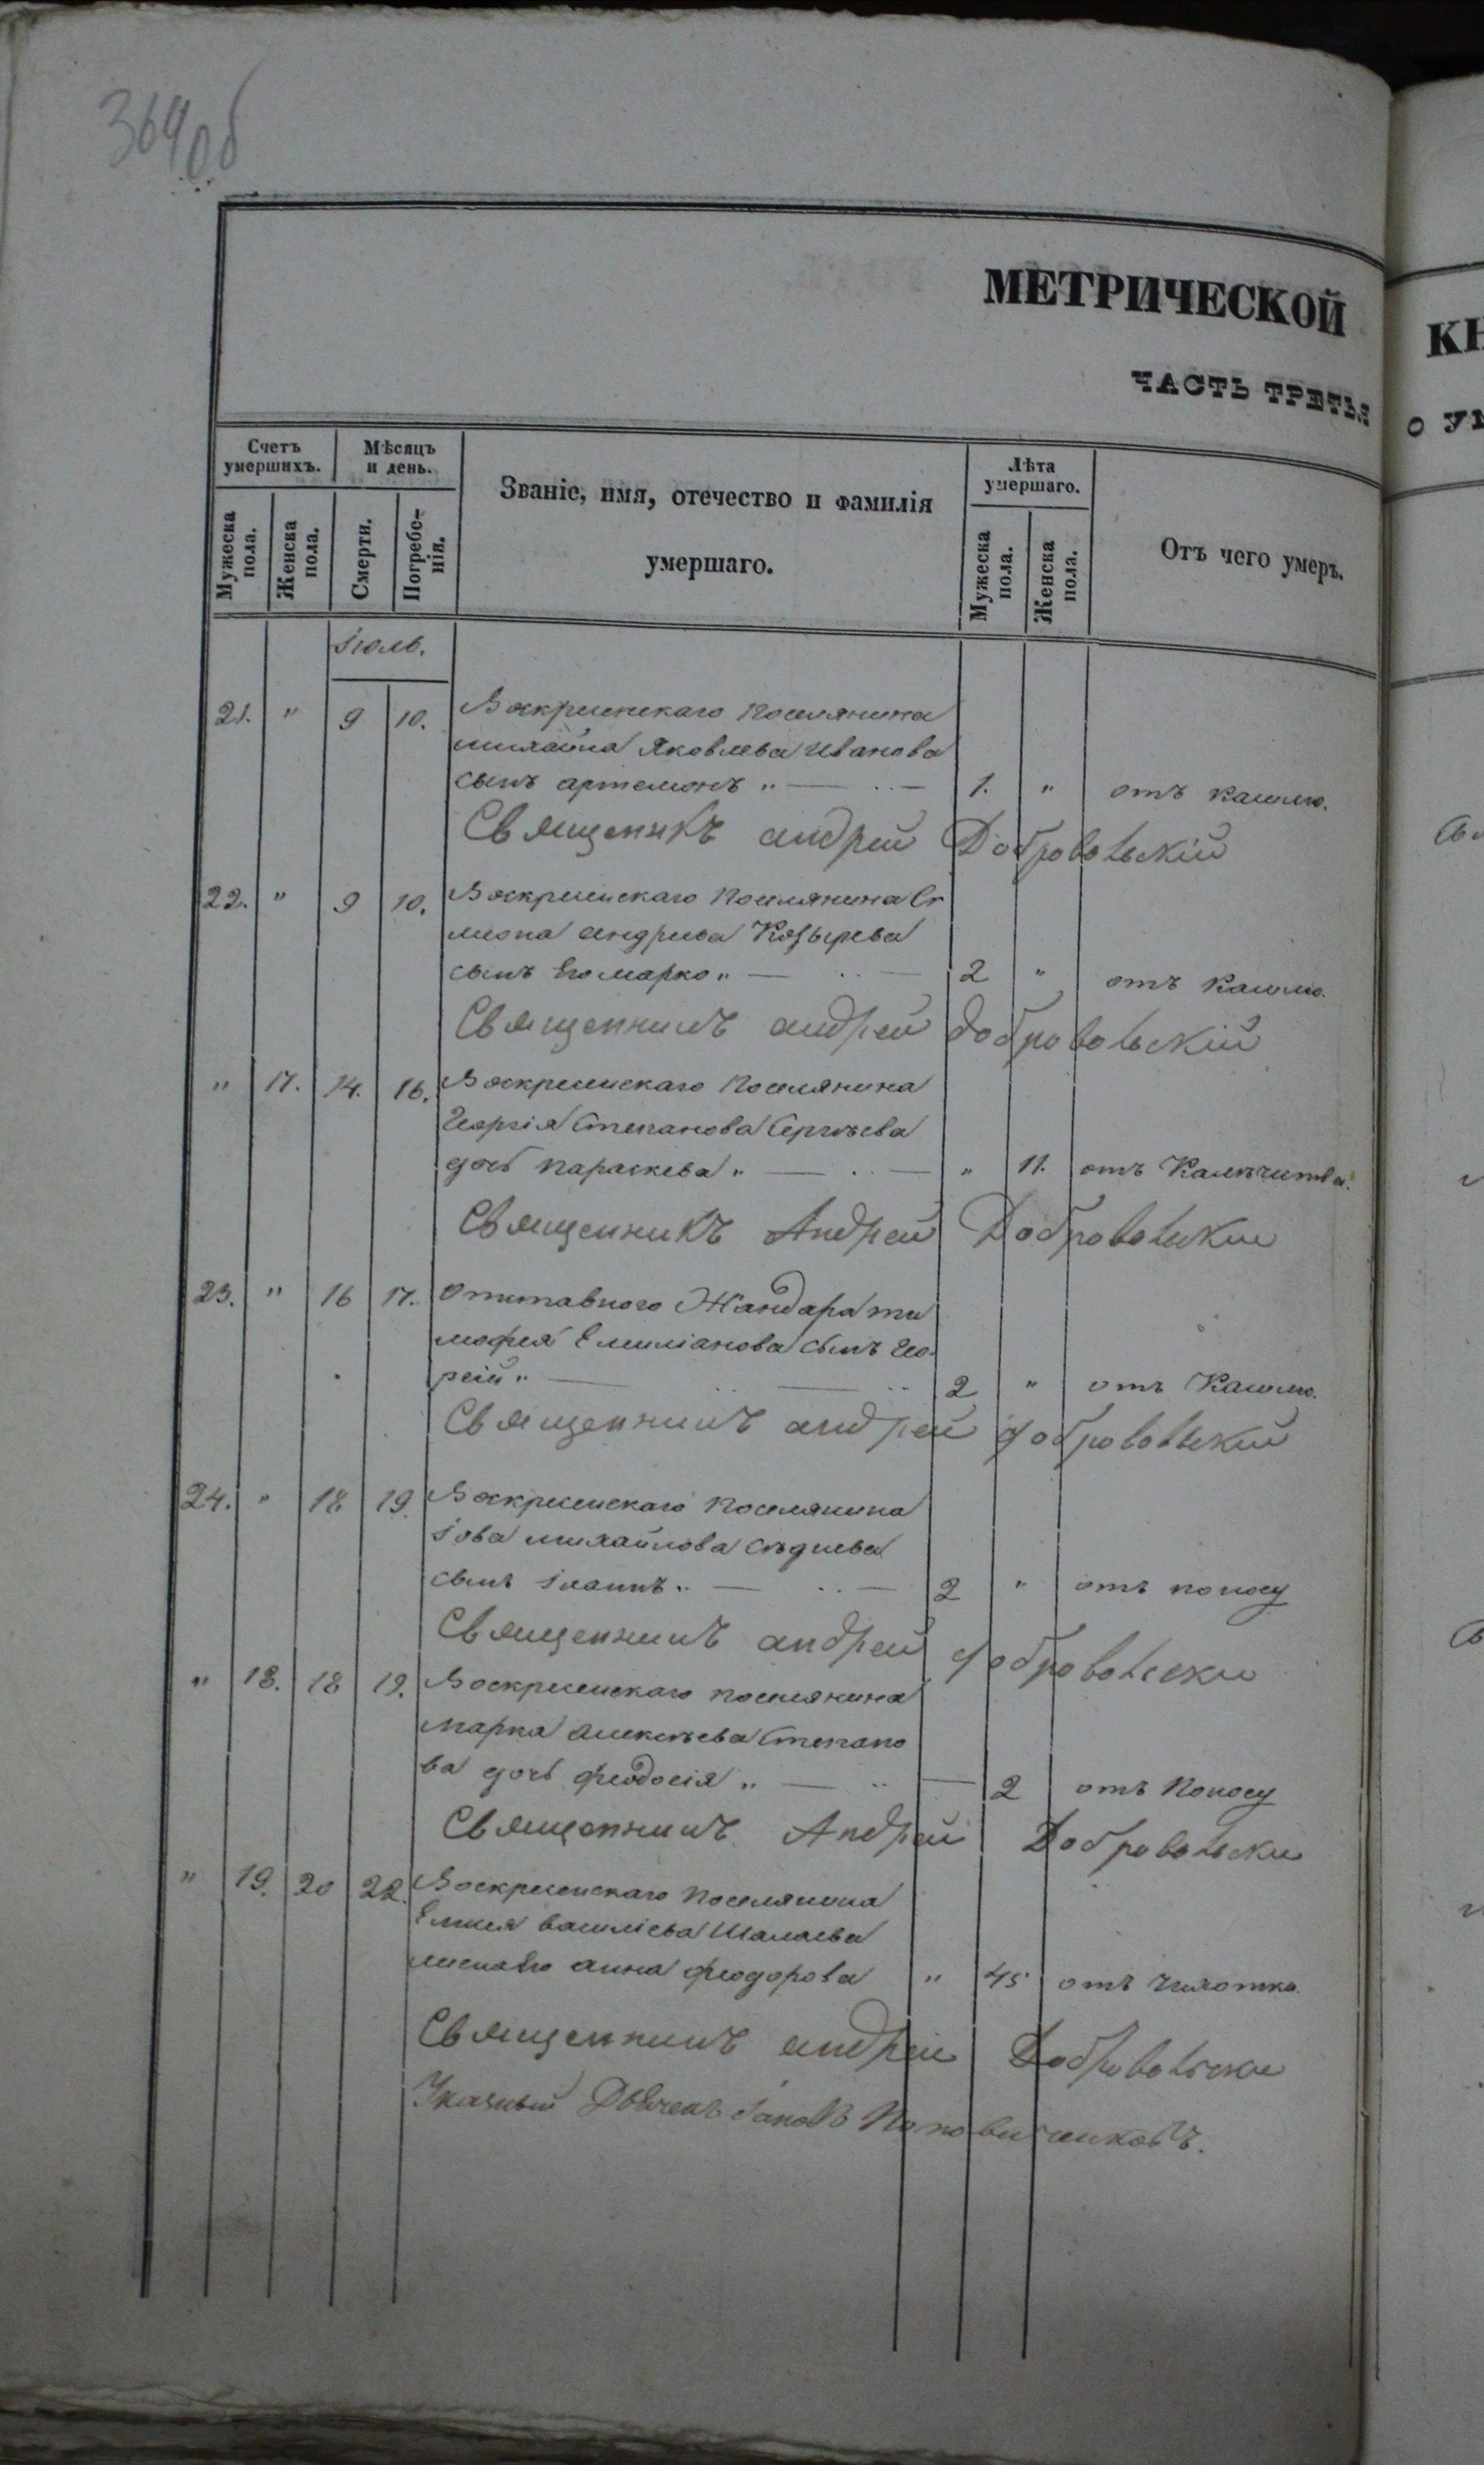 364 об
МЕТРИЧЕСКОЙ
КН
ЧАСТЬ ТРЕТЬЯ
О УМ
Счетъ умершихъ.
Мѣсяцъ и день.
Званіе, имя, отечество и фамилія умершаго.
Лѣта умершаго.
Отъ чего умеръ.
Мужеска пола.
Женска пола.
Смерти.
Погребе-нія.
Мужеска пола.
Женска пола.
Іюль.
21. " 9 10. Воскрисенскаго поселянина
михайла Яковлева Иванова
сынъ артемонъ " 1. " отъ кашлю.
Священикъ андрей Добровольскій
22. " 9 10. Воскрисенскаго поселянина Си
миона андриева Козырева
сынъ Его марко " 2 " отъ кашлю.
Священникъ андрей добровольскій
" 17. 14. 16. Воскрисенскаго поселянина
Георгія Степанова Сергѣева
дочь параскева " " 11. отъ Калѣчитва.
Священникъ Андрей Добровольскій
23. " 16 17. Отставного Жандара ти
мофея Емиліанова сынъ Гео
ргій " 2 " отъ Кашлю.
Священникъ андрей добровольскій
24. " 18 19. Воскрисенскаго поселянина
Іова михайлова Сѣднева
сынъ Іоаннъ " 2 " отъ поносу
Священникъ андрей добровольски
" 18. 18 19. Воскрисенскаго поселянина
марка алексѣева Степано
ва дочь феодосія " 2 отъ Поносу
Священникъ Андрей Добровольски
" 19. 20 22. Воскрисенскаго поселянина
василіева Шалаева
жена Его анна феодорова " 45 отъ чихотка.
Священникъ андреи Добровольски
Указный Іаковъ